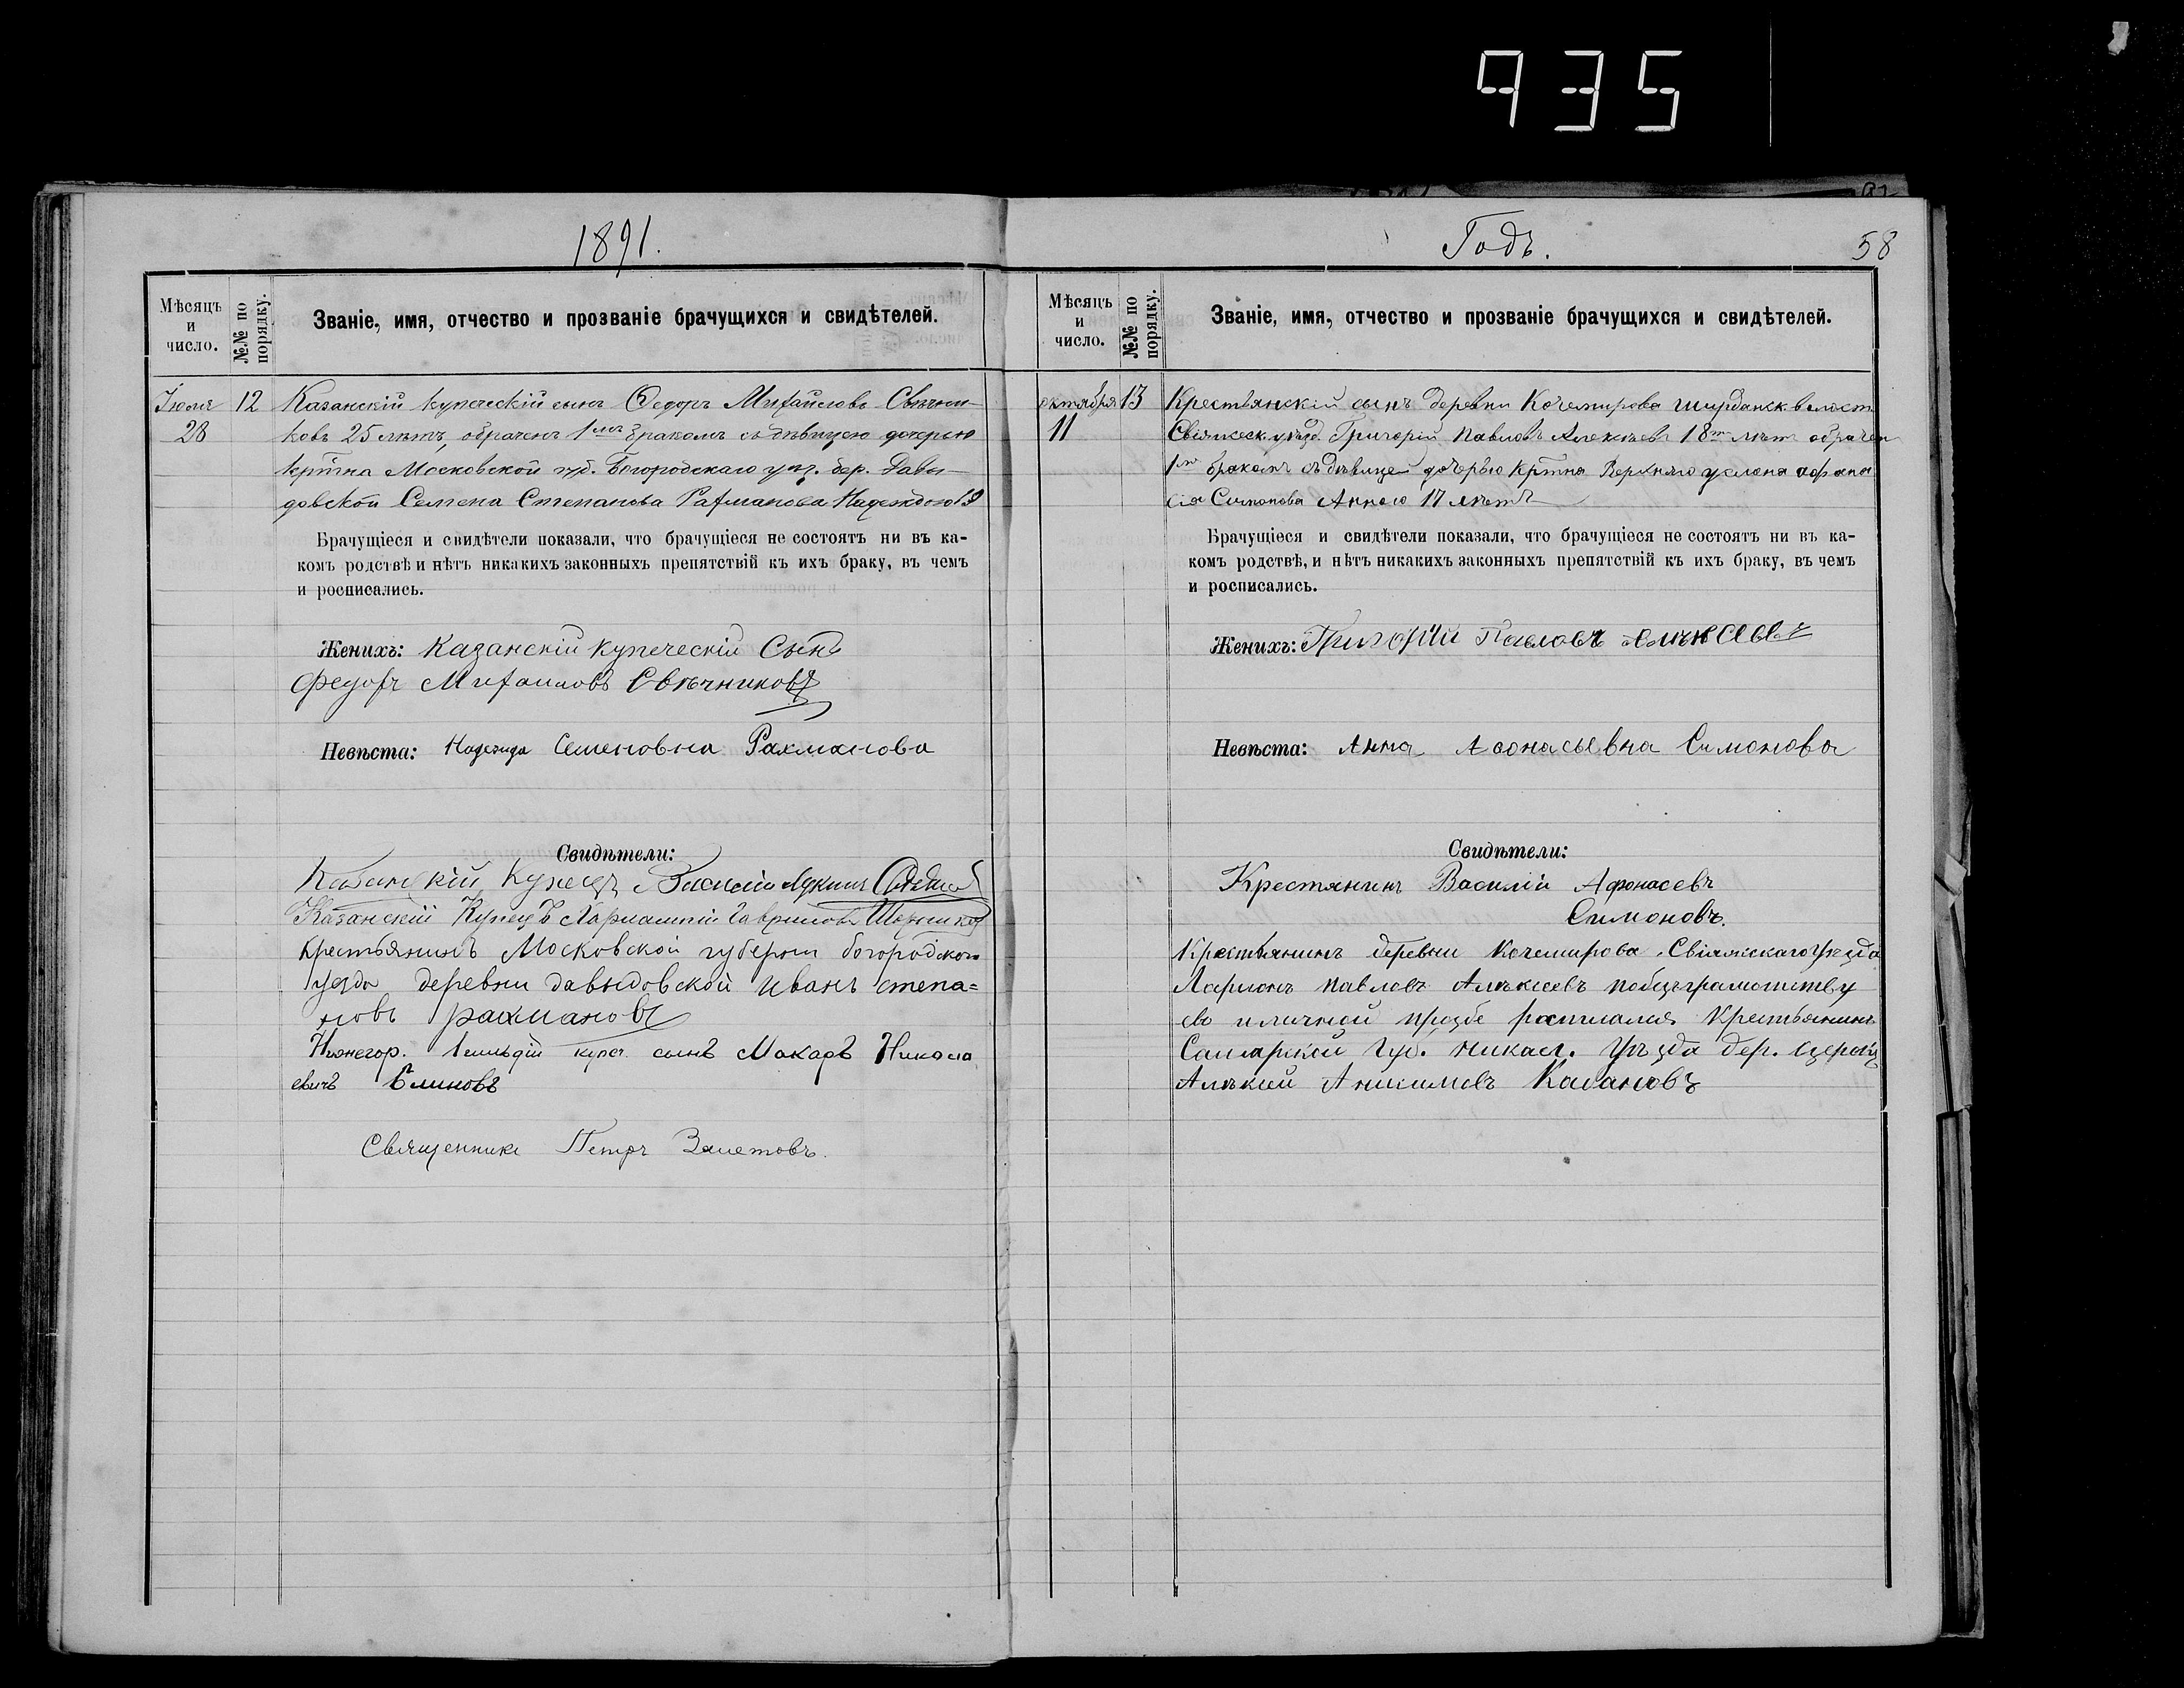 935
1891.
Мѣсяцъ и число.
№№ по порядку.
Званіе, имя, отчество и прозваніе брачущихся и свидѣтелей.
Іюля 12 Казанскій купеческій сынъ Ѳедоръ Михайловъ Свѣчни-
28 ковъ 25 лѣтъ, обрачен 1мъ бракомъ съ дѣвицею дочерью
кртна Московской губ. Богородскаго уѣз. дер. Давы-
довской Семена Степанова Рахманова Надеждою 19
Брачущіеся и свидѣтели показали, что брачущіеся не состоятъ ни въ ка-
комъ родствѣ и нѣтъ никакихъ законныхъ препятствій къ ихъ браку, въ чемъ
и росписались.
Женихъ: Казанскій купеческій Сынъ
Федоръ Михаиловъ Свѣчниковъ
Невѣста: Надежда Семеновна Рахманова
Свидѣтели:
Казанскій Купецъ Василій
Казанскій Купецъ Гавриловъ
крестьянинъ Московской губернии богородского
уезда деревни давыдовской Иванъ степа=
новъ рахмановъ
купеч. сынъ Макаръ Никола
евичъ Блиновъ
Священникъ Петръ Залетовъ.
Годъ.
58
Мѣсяцъ и число.
№№ по порядку.
Званіе, имя, отчество и прозваніе брачущихся и свидѣтелей.
октября 13 Крестьянскій сынъ деревни Кочемирова ширданск. волост
11 Свіяжск. уѣзд. Григорій Павловъ Алексѣевъ 18ти лѣтъ обрачен
1мъ бракомъ съ дѣвицей дочерью кртна Верхняго услона афана
сія Симонова Анною 17 лѣтъ
Брачущіеся и свидѣтели показали, что брачущіеся не состоятъ ни въ ка-
комъ родствѣ, и нѣтъ никакихъ законныхъ препятствій къ ихъ браку, въ чемъ
и росписались.
Женихъ: Григорий Павловъ
Невѣста: Анна Афонасьевна Симонова
Свидѣтели:
Крестянинъ Василій Афонасевъ
Симоновъ.
Крестьянинъ деревни Кочемирова Свіяжскаго Уезда
Ларионъ Павловъ Алѣксеевъ
ево и личной прозбе росписался Крестьянинъ
Самарской Губ. Никол. Уѣзда дер.
Алѣксей Анисимовъ